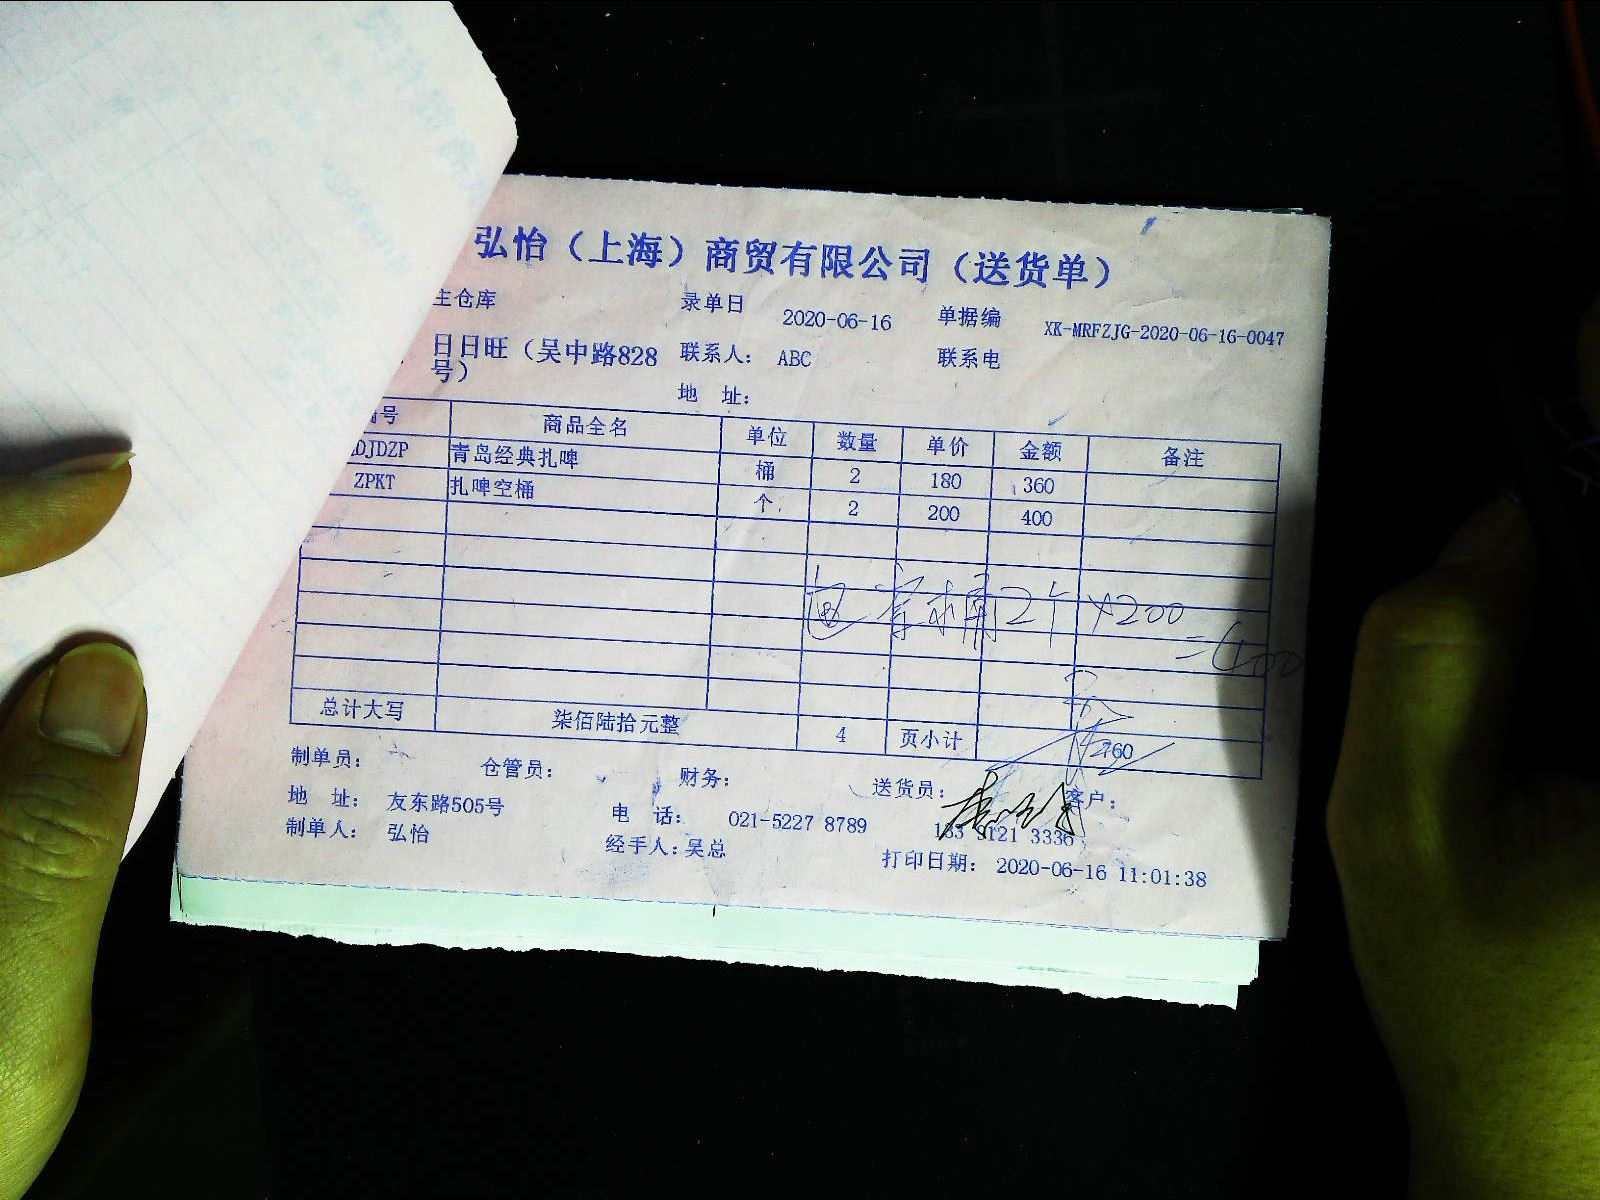 弘怡（上海）商贸有限公司（送货单）
主仓库 录单日 2020-06-16 单据编 XK-MRFZJG-2020-06-16-0047
日日旺（吴中路828号） 联系人： ABC 联系电
地 址：
号 商品全名 单位 数量 单价 金额 备注
DJDZP 青岛经典扎啤 桶 2 180 360
ZPKT 扎啤空桶 个 2 200 400
空桶2个×200
=400
总计大写 柒佰陆拾元整 4 页小计 760
制单员： 仓管员： 财务： 送货员： 客户：
地 址： 友东路505号 电 话： 021-5227 8789 133 9121 3336
制单人： 弘怡 经手人：吴总 打印日期： 2020-06-16 11:01:38